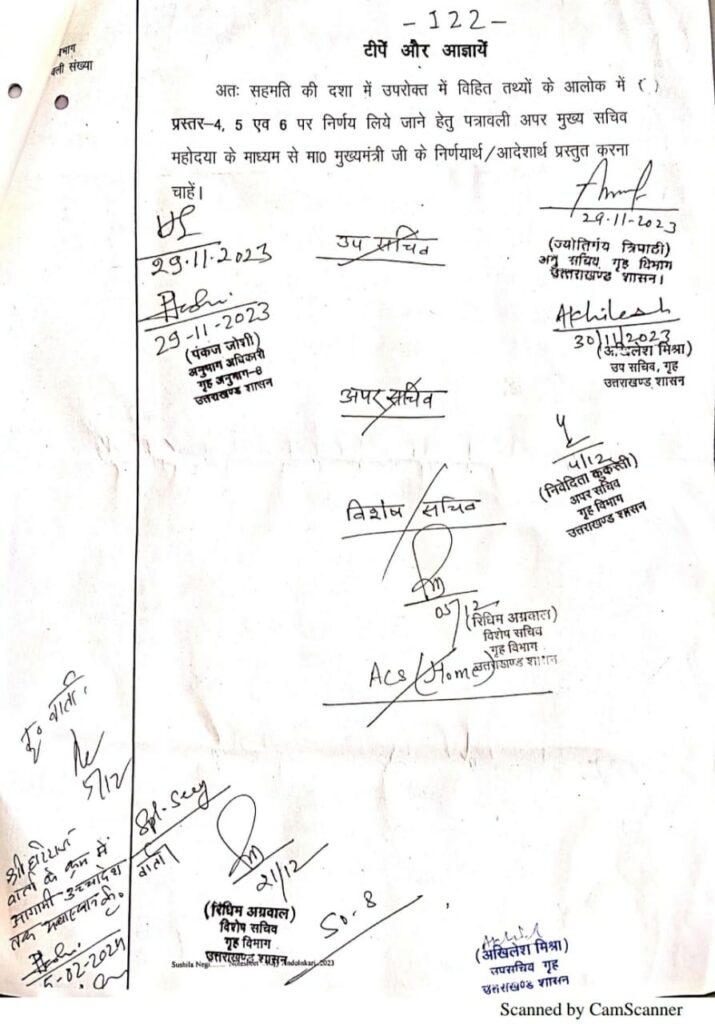 - 122 -
टीपें और आज्ञायें
संख्या
अतः सहमति की दशा में उपरोक्त में विहित तथ्यों के आलोक में ( )
प्रस्तर-4, 5 एव 6 पर निर्णय लिये जाने हेतु पत्रावली अपर मुख्य सचिव
महोदया के माध्यम से मा0 मुख्यमंत्री जी के निर्णयार्थ/आदेशार्थ प्रस्तुत करना
चाहें।
29.11.2023
उप सचिव
29-11-2023
(ज्योतिर्गय त्रिपाठी)
अनु सचिव, गृह विभाग
उत्तराखण्ड शासन।
29-11-2023
(पंकज जोशी)
अनुभाग अधिकारी
गृह अनुभाग-8
उत्तराखण्ड शासन
Akhilesh
30/11/2023
(अखिलेश मिश्रा)
उप सचिव, गृह
उत्तराखण्ड शासन
अपर सचिव
4/12
(निवेदिता कुकरेती)
अपर सचिव
गृह विभाग
उत्तराखण्ड शासन
विशेष सचिव
05/12
(रिधिम अग्रवाल)
विशेष सचिव
गृह विभाग
उत्तराखण्ड शासन
ACS (Home)
कृ० वार्ता।
5/12
Spl. Secy
वार्ता
21/12
(रिधिम अग्रवाल)
विशेष सचिव
गृह विभाग
उत्तराखण्ड शासन
SO-8
वार्ता के क्रम में
आगामी उच्चादेश
तक
5-02-2024
Sushila Negi
2023
(अखिलेश मिश्रा)
उपसचिव गृह
उत्तराखण्ड शासन
Scanned by CamScanner